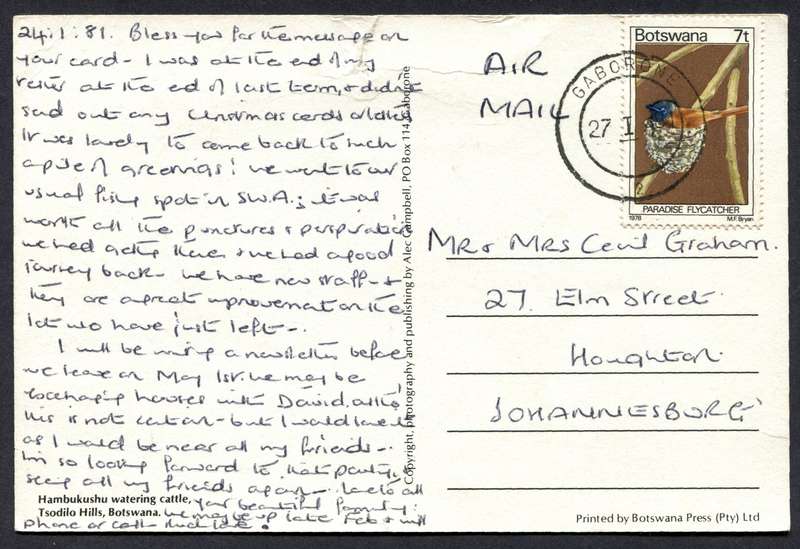 24:1:81. Bless you for the message on
your card - I was at the end of my
tether at the end of last term, & didn't
send out any Christmas cards at all.
It was lovely to come back to such
a pile of greetings! We went to our
usual fishing spot in S.W.A.; it was
worth all the punctures & perspiration
we had getting there & we had a good
journey back - we have new staff - &
they are a great improvement on the
lot who have just left -.
I will be writing a newsletter before
we leave on May 1st. We may be
exchanging houses with David, altho'
this is not certain - but I would love it
as I would be near all my friends -.
I'm so looking forward to that party, &
seeing all my friends again - love to all
your beautiful family:
we may be up late Feb & will
phone or call - Much love.
Hambukushu watering cattle,
Tsodilo Hills, Botswana.
Copyright, photography and publishing by Alec Campbell, PO Box 114, Gaborone
AIR
MAIL
GABORONE
27 I
Botswana 7t
PARADISE FLYCATCHER
1978 M.F. Bryan
Mr & Mrs Cecil Graham.
27 Elm Street.
Houghton.
JOHANNESBURG
Printed by Botswana Press (Pty) Ltd